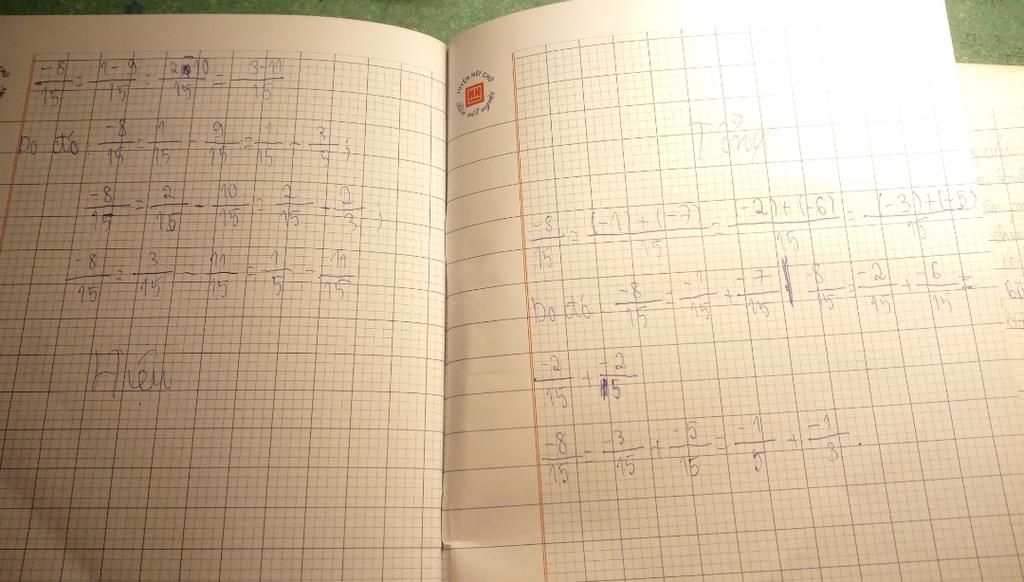 -8/15 = 1-9/15 = 2-10/15 = 3-11/15
Do đó -8/15 = 1/15 - 9/15 = 1/15 - 3/5 ;
-8/15 = 2/15 - 10/15 = 2/15 - 2/3 ;
-8/15 = 3/15 - 11/15 = 1/5 - 11/15
Hiệu
LUYỆN NÉT CHỮ
Tổng
-8/15 = (-1)+(-7)/15 = (-2)+(-6)/15 = (-3)+(-5)/15
Do đó -8/15 = -1/15 + -7/15 -8/15 = -2/15 + -6/15 =
-2/15 + -2/15
-8/15 = -3/15 + -5/15 = -1/5 + -1/3 .